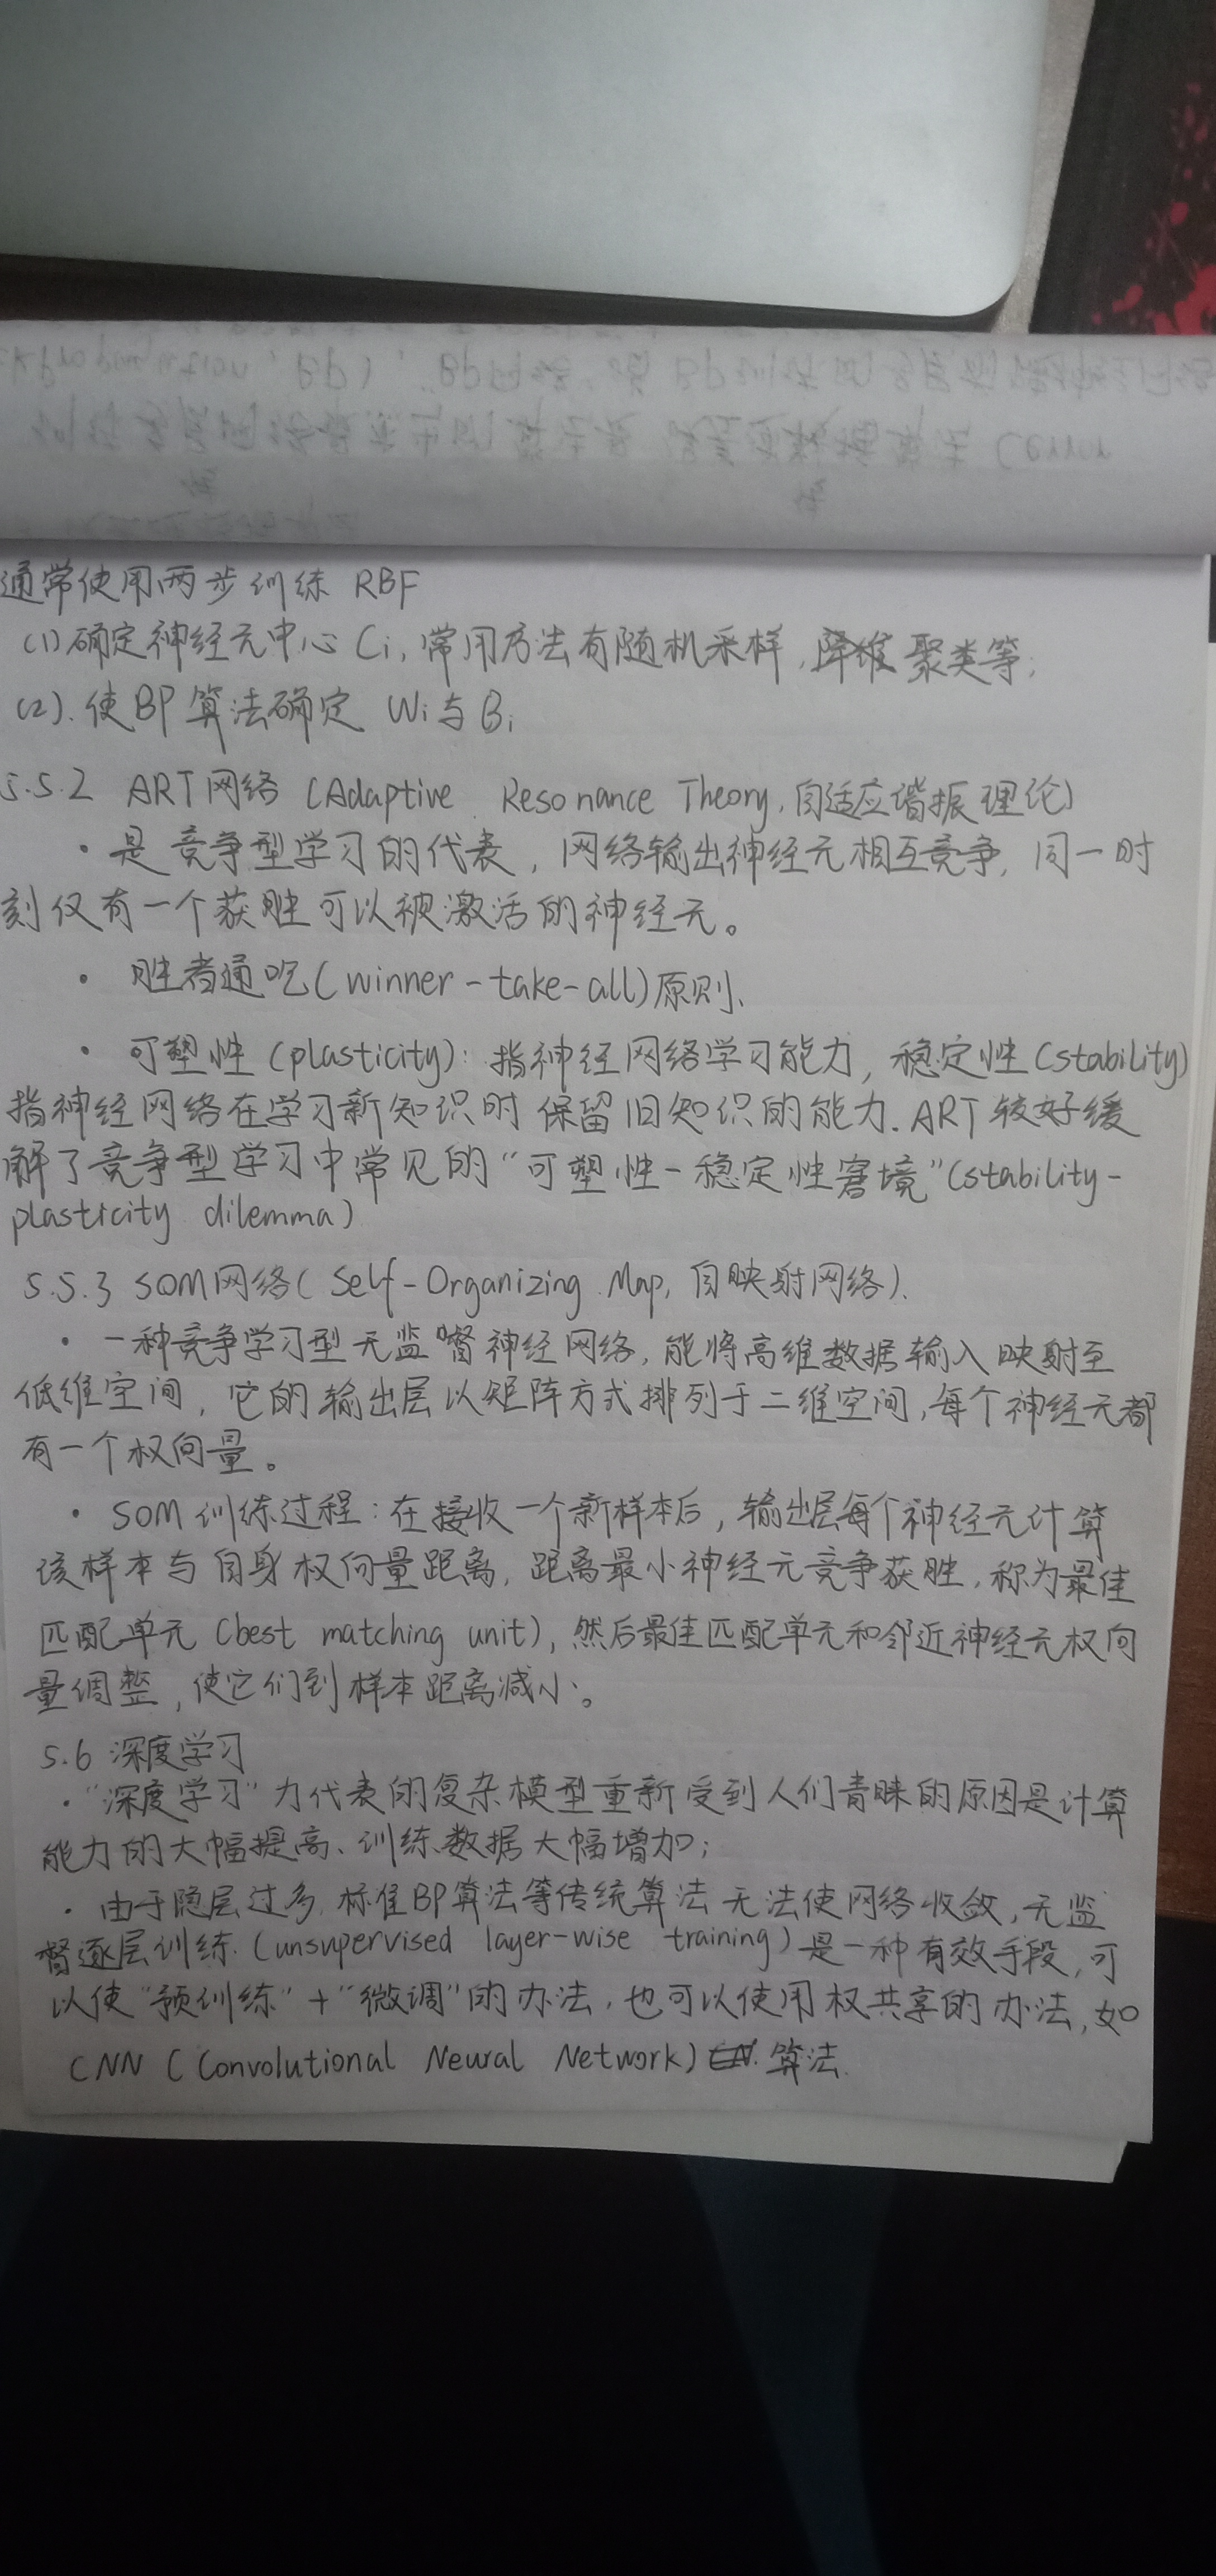 通常使用两步训练 RBF
(1)确定神经元中心 Ci, 常用方法有随机采样, 聚类等;
(2). 使BP算法确定 Wi与Bi
5.5.2 ART网络 (Adaptive Resonance Theory, 自适应谐振理论)
· 是竞争型学习的代表, 网络输出神经元相互竞争, 同一时
刻仅有一个获胜可以被激活的神经元。
· 胜者通吃(winner-take-all)原则、
· 可塑性 (plasticity): 指神经网络学习能力, 稳定性(stability)
指神经网络在学习新知识时保留旧知识的能力. ART较好缓
解了竞争型学习中常见的“可塑性-稳定性窘境”(stability-
plasticity dilemma)
5.5.3 SOM网络( Self-Organizing Map, 自映射网络).
· 一种竞争学习型无监督神经网络, 能将高维数据输入映射至
低维空间, 它的输出层以矩阵方式排列于二维空间, 每个神经元都
有一个权向量。
· SOM训练过程: 在接收一个新样本后, 输出层每个神经元计算
该样本与自身权向量距离, 距离最小神经元竞争获胜, 称为最佳
匹配单元 (best matching unit), 然后最佳匹配单元和邻近神经元权向
量调整, 使它们到样本距离减小。
5.6 深度学习
· “深度学习”力代表的复杂模型重新受到人们青睐的原因是计算
能力的大幅提高、训练数据大幅增加;
· 由于隐层过多, 标准BP算法等传统算法无法使网络收敛, 无监
督逐层训练. (unsupervised layer-wise training) 是一种有效手段, 可
以使“预训练”+“微调”的办法, 也可以使用权共享的办法, 如
CNN (Convolutional Neural Network) 算法.